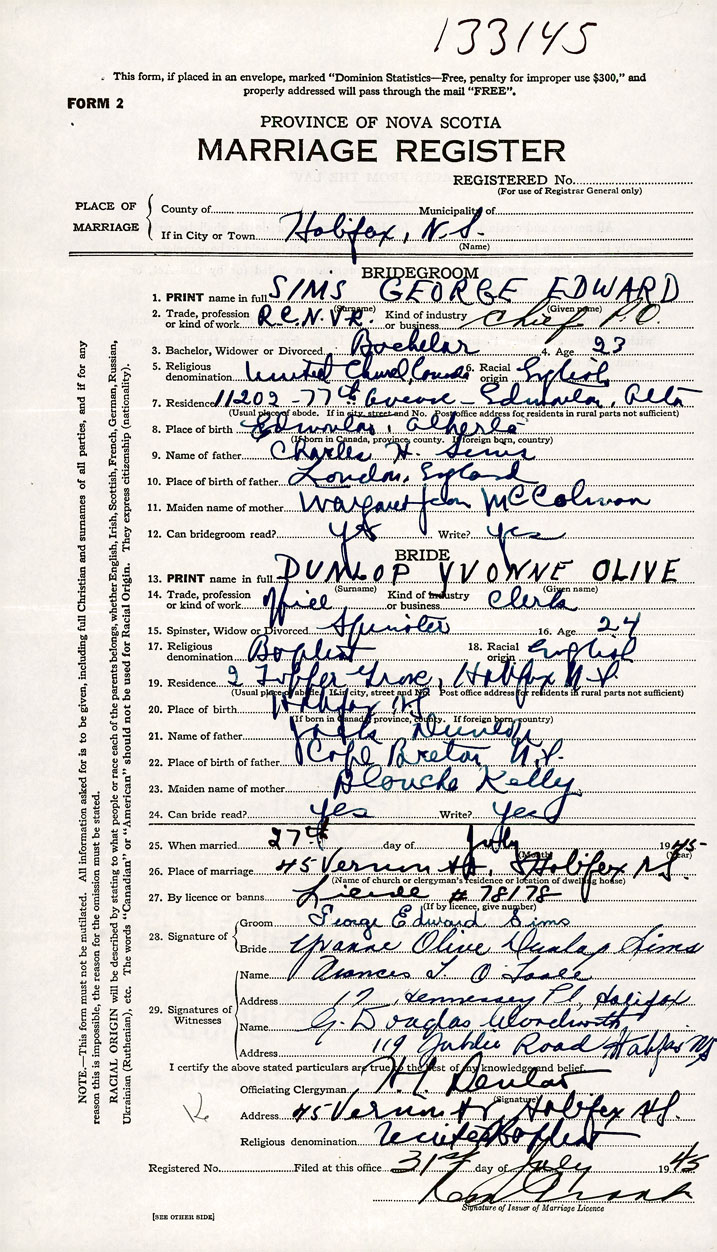 133145
This form, if placed in an envelope, marked "Dominion Statistics—Free, penalty for improper use $300," and
properly addressed will pass through the mail "FREE".
FORM 2
PROVINCE OF NOVA SCOTIA
MARRIAGE REGISTER
REGISTERED No.
(For use of Registrar General only)
PLACE OF MARRIAGE
County of Municipality of
If in City or Town Halifax, N.S.
(Name)
BRIDEGROOM
1. PRINT name in full SIMS GEORGE EDWARD
(Surname) (Given name)
2. Trade, profession or kind of work R.C.N.V.R. Kind of industry or business Chief P.O.
3. Bachelor, Widower or Divorced Bachelor 4. Age 23
5. Religious denomination United Church Canada 6. Racial origin English
7. Residence 11202-77th Avenue - Edmonton, Alta
(Usual place of abode. If in city, street and No. Post office address for residents in rural parts not sufficient)
8. Place of birth Edmonton, Alberta
(If born in Canada, province, county. If foreign born, country)
9. Name of father Charles H. Sims
10. Place of birth of father London, England
11. Maiden name of mother Margaret Jean McColman
12. Can bridegroom read? yes Write? yes
BRIDE
13. PRINT name in full DUNLOP YVONNE OLIVE
(Surname) (Given name)
14. Trade, profession or kind of work Kind of industry or business Clerk
15. Spinster, Widow or Divorced Spinster 16. Age 24
17. Religious denomination Baptist 18. Racial origin English
19. Residence 2 Grove, Halifax N.S.
(Usual place of abode. If in city, street and No. Post office address for residents in rural parts not sufficient)
20. Place of birth Halifax NS
(If born in Canada, province, county. If foreign born, country)
21. Name of father Dunlop
22. Place of birth of father Cape Breton N.S.
23. Maiden name of mother Blanche Kelly
24. Can bride read? yes Write? yes
25. When married 27th day of July 1945
(Month) (Year)
26. Place of marriage 45 Vernon St, Halifax NS
(Name of church or clergyman's residence or location of dwelling house)
27. By licence or banns License # 78178
(If by licence, give number)
28. Signature of
Groom George Edward Sims
Bride Yvonne Olive Dunlop Sims
29. Signatures of Witnesses
Name Frances O'Toole
Address 17 Hennessey Pl, Halifax
Name G. Douglas Wordworth
Address 119 Road Halifax NS
I certify the above stated particulars are true to the best of my knowledge and belief.
Officiating Clergyman
(Signature)
Address 45 Vernon St Halifax NS.
Religious denomination United Baptist
Registered No. Filed at this office 31st day of July 1945
Signature of Issuer of Marriage Licence
[SEE OTHER SIDE]
NOTE.—This form must not be mutilated. All information asked for is to be given, including full Christian and surnames of all parties, and if for any
reason this is impossible, the reason for the omission must be stated.
RACIAL ORIGIN will be described by stating to what people or race each of the parents belongs, whether English, Irish, Scottish, French, German, Russian,
Ukrainian (Ruthenian), etc. The words "Canadian" or "American" should not be used for Racial Origin. They express citizenship (nationality).